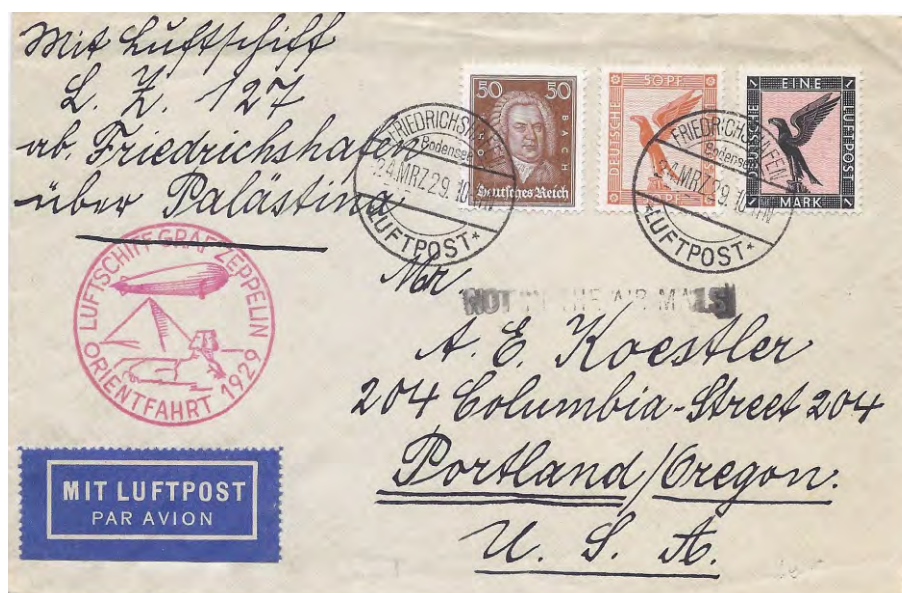 Mit Luftschiff
L. Z. 127
ab. Friedrichshafen
über Palästina
50 50
JOH. S. BACH
Deutsches Reich
50 PF
DEUTSCHE
PF.
EINE
DEUTSCHE LUFTPOST
1 1
MARK
FRIEDRICHSHAFEN
(Bodensee)
24.MRZ.29.10
*LUFTPOST*
FRIEDRICHSHAFEN
(Bodensee)
24.MRZ.29.10
*LUFTPOST*
LUFTSCHIFF GRAF ZEPPELIN
ORIENTFAHRT 1929
Mr
NOT IN THE AIR MAILS
A. E. Koestler
204 Columbia-Street 204
Portland/Oregon.
U. S. A.
MIT LUFTPOST
PAR AVION